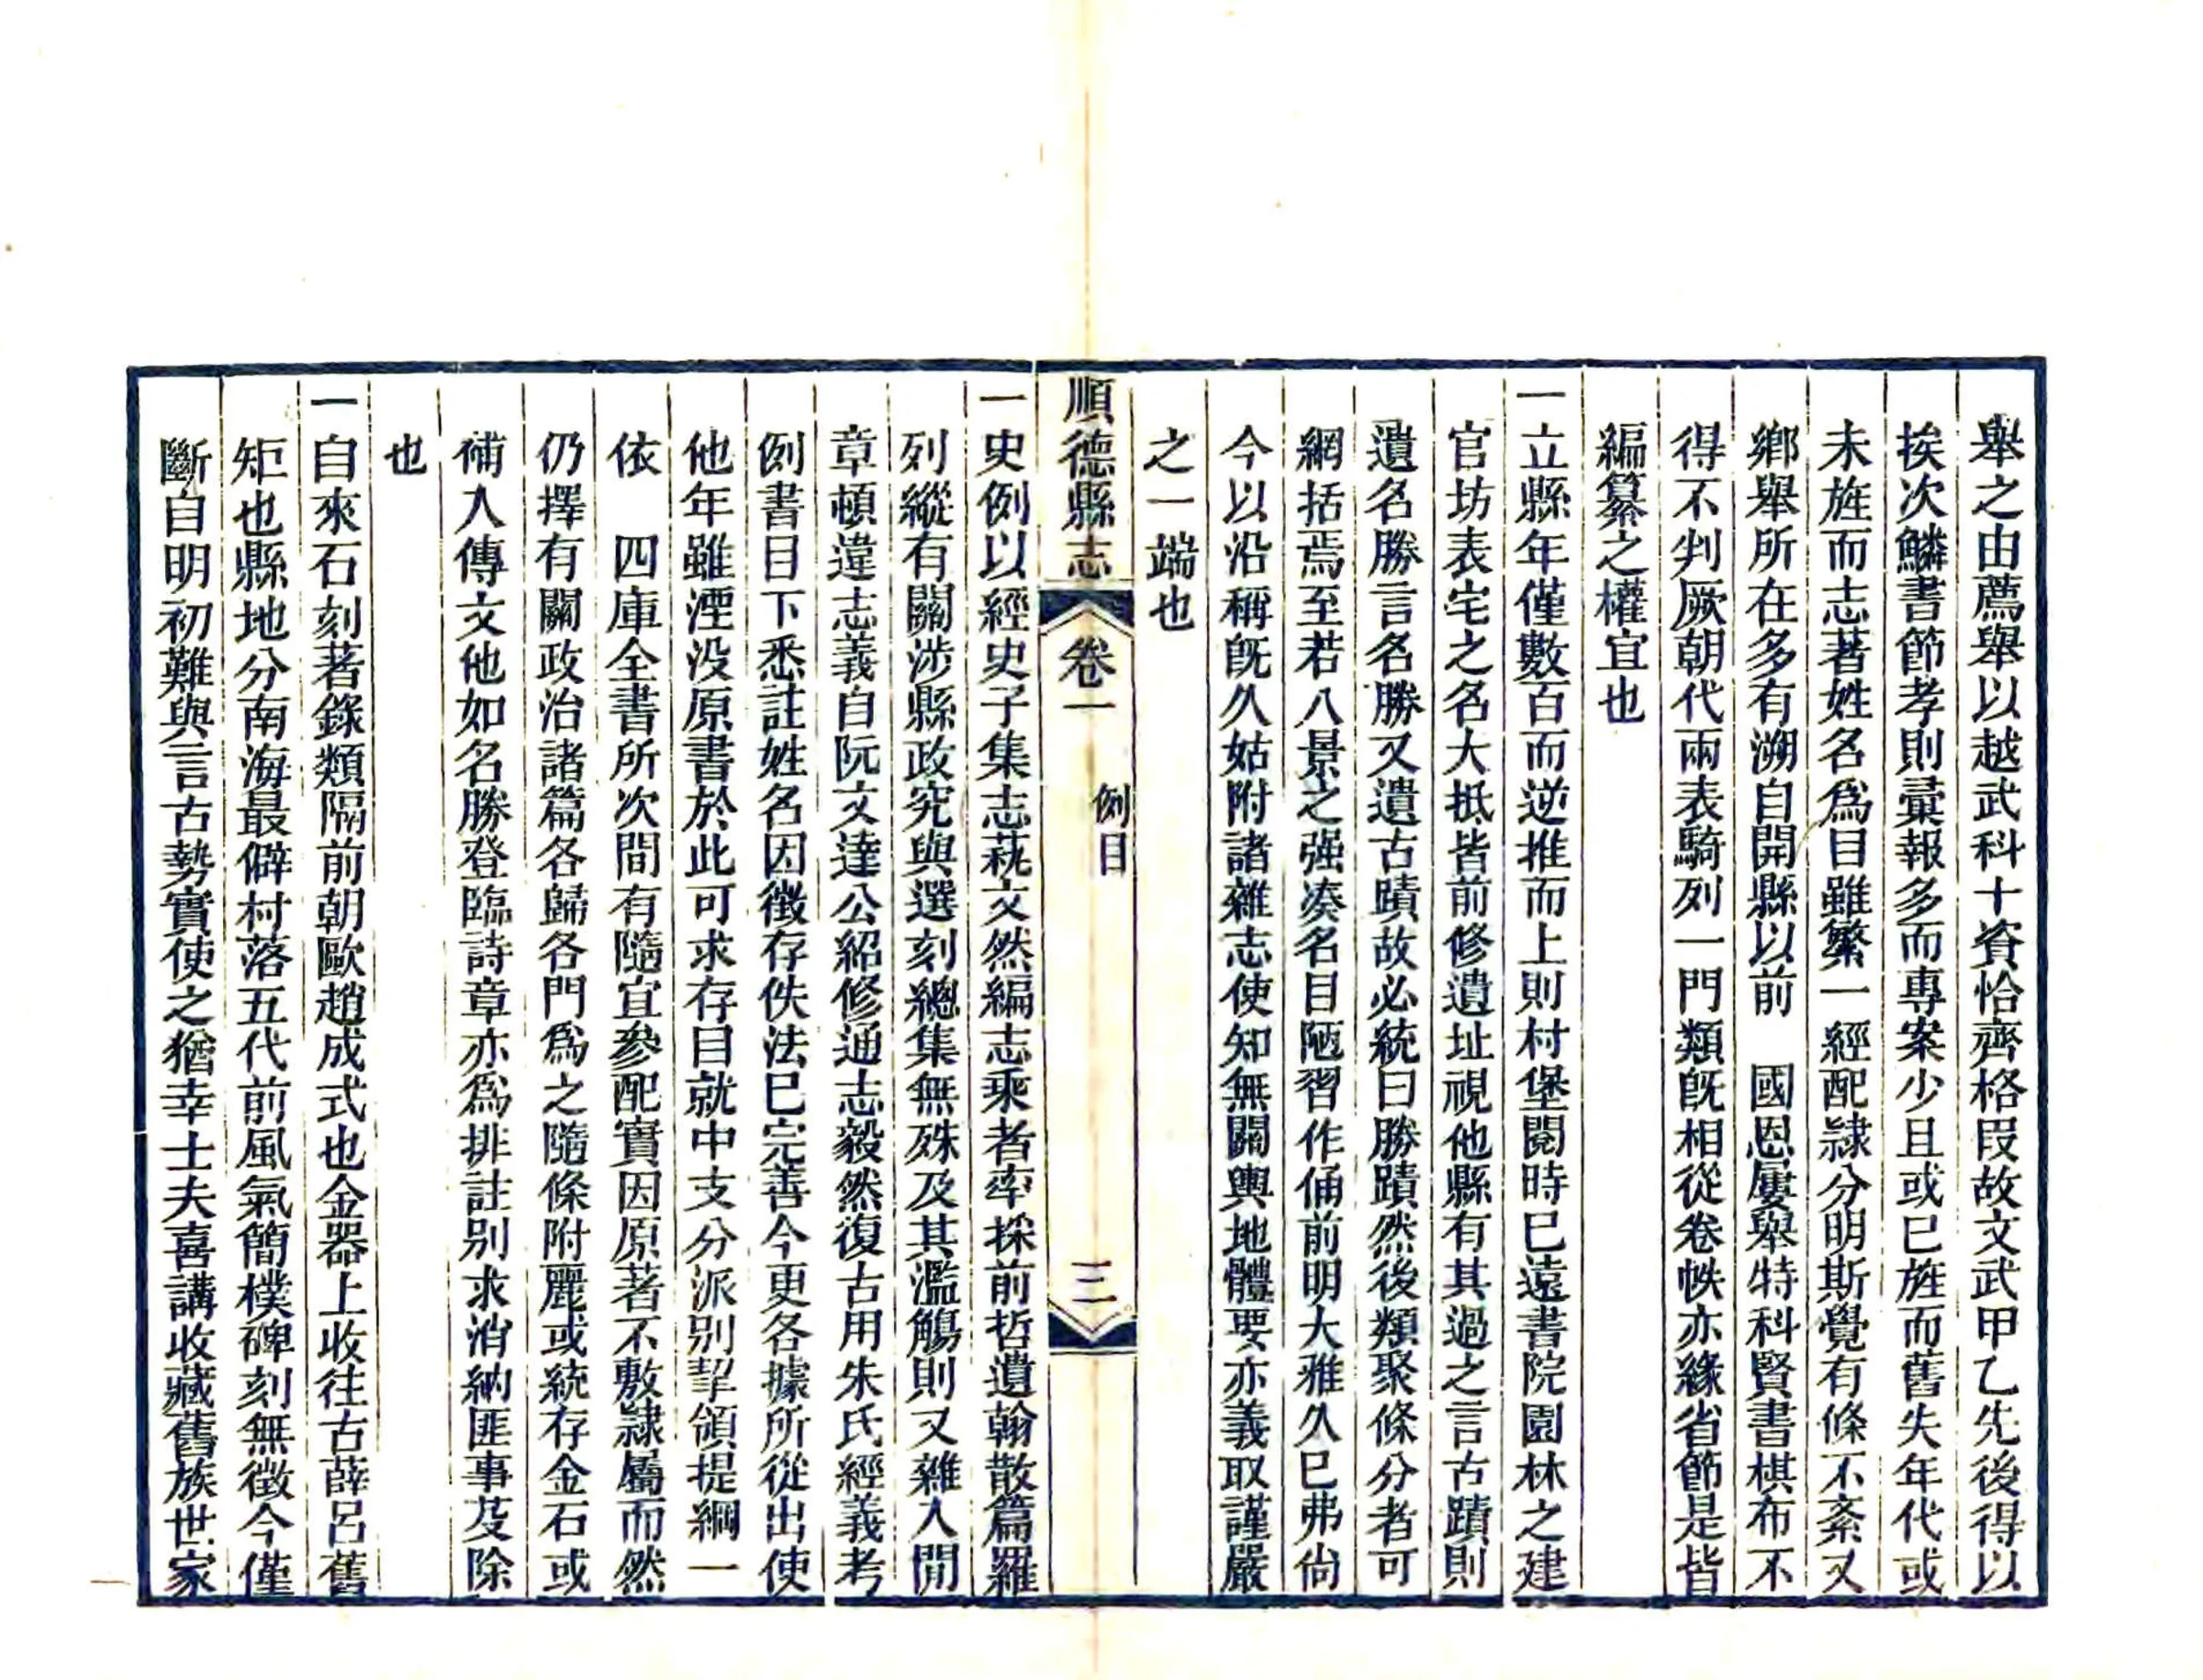 舉之由薦舉以越武科十資恰齊格叚故文武甲乙先後得以
挨次鱗書節孝則彙報多而專案少且或巳旌而舊失年代或
未旌而志著姓名爲目雖繁一經配隷分明斯覺有條不紊又
鄉舉所在多有溯自開縣以前　國恩屢舉特科賢書棋布不
得不判厥朝代兩表騎列一門類旣相從卷帙亦緣省節是皆
編纂之權宜也
一立縣年僅數百而逆推而上則村堡閱時巳遠書院園林之建
官坊表宅之名大抵皆前修遺址視他縣有其過之言古蹟則
遺名勝言名勝又遺古蹟故必統曰勝蹟然後類聚條分者可
網括焉至若八景之强湊名目陋習作俑前明大雅久巳弗尙
今以沿稱旣久姑附諸雜志使知無關輿地體要亦義取謹嚴
之一端也
順德縣志　卷一　例目　三
一史例以經史子集志萟文然編志乘者率採前哲遺翰散篇羅
列縱有關涉縣政究與選刻總集無殊及其濫觴則又雜入閒
章頓違志義自阮文達公紹修通志毅然復古用朱氏經義考
例書目下悉註姓名因徵存佚法巳完善今更各據所從出使
他年雖湮没原書於此可求存目就中支分派別挈領提綱一
依　四庫全書所次間有隨宜參配實因原著不敷隷屬而然
仍擇有關政治諸篇各歸各門爲之隨條附麗或統存金石或
補入傳文他如名勝登臨詩章亦爲排註別求消納匪事芟除
也
一自來石刻著錄類隔前朝歐趙成式也金器上收往古薛呂舊
矩也縣地分南海最僻村落五代前風氣簡樸碑刻無徵今僅
斷自明初難與言古勢實使之猶幸士夫喜講收藏舊族世家